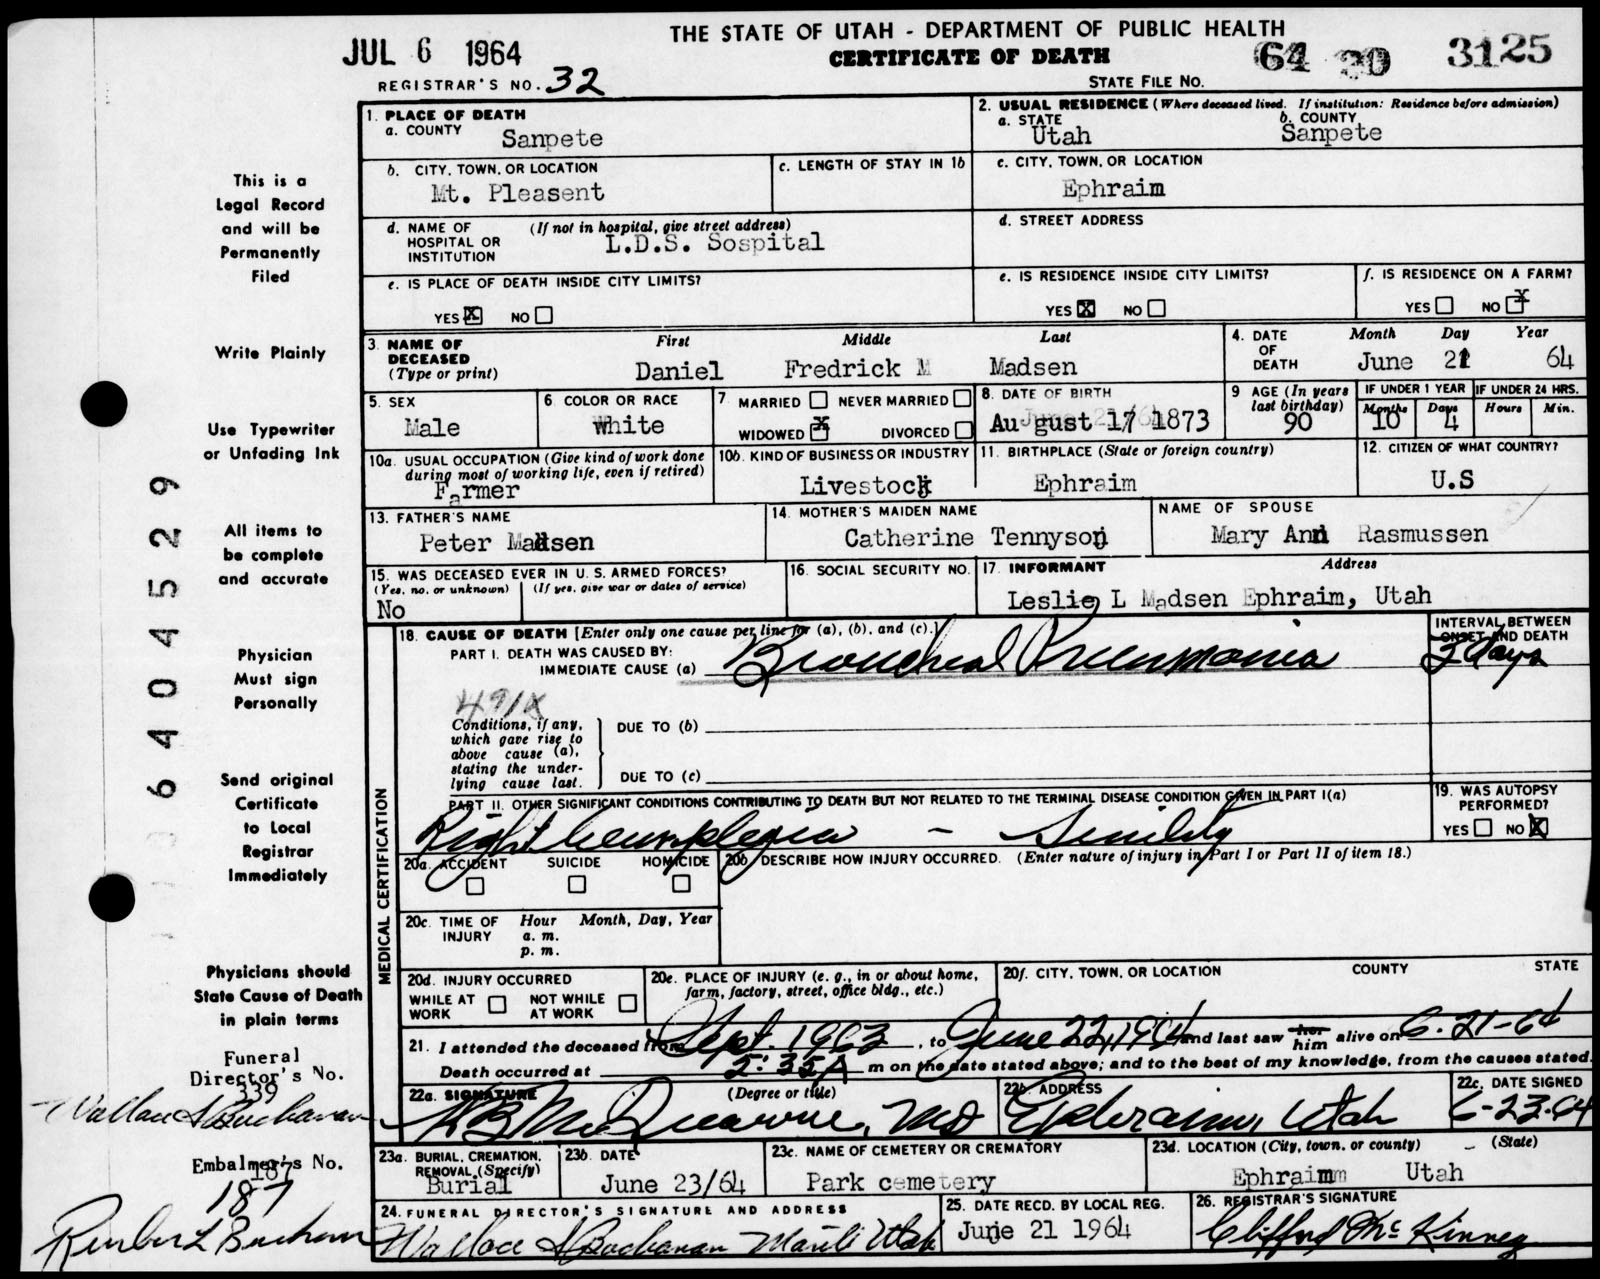 THE STATE OF UTAH - DEPARTMENT OF PUBLIC HEALTH
JUL 6 1964
CERTIFICATE OF DEATH
64 30 3125
REGISTRAR'S NO. 32
STATE FILE NO.
1. PLACE OF DEATH
a. COUNTY
Sanpete
2. USUAL RESIDENCE (Where deceased lived. If institution: Residence before admission)
a. STATE b. COUNTY
Utah Sanpete
b. CITY, TOWN, OR LOCATION
Mt. Pleasent
c. LENGTH OF STAY IN 1b
c. CITY, TOWN, OR LOCATION
Ephraim
d. NAME OF HOSPITAL OR INSTITUTION
(If not in hospital, give street address)
L.D.S. Sospital
d. STREET ADDRESS
e. IS PLACE OF DEATH INSIDE CITY LIMITS?
YES X NO
e. IS RESIDENCE INSIDE CITY LIMITS?
YES X NO
f. IS RESIDENCE ON A FARM?
YES NO X
3. NAME OF DECEASED
(Type or print)
First Middle Last
Daniel Fredrick M Madsen
4. DATE OF DEATH
Month Day Year
June 21 64
5. SEX
Male
6. COLOR OR RACE
White
7. MARRIED NEVER MARRIED
WIDOWED X DIVORCED
8. DATE OF BIRTH
August 17 1873
9 AGE (In years last birthday)
90
IF UNDER 1 YEAR IF UNDER 24 HRS.
Months Days Hours Min.
10 4
10a. USUAL OCCUPATION (Give kind of work done
during most of working life, even if retired)
Farmer
10b. KIND OF BUSINESS OR INDUSTRY
Livestock
11. BIRTHPLACE (State or foreign country)
Ephraim
12. CITIZEN OF WHAT COUNTRY?
U.S
13. FATHER'S NAME
Peter Madsen
14. MOTHER'S MAIDEN NAME
Catherine Tennyson
NAME OF SPOUSE
Mary Ann Rasmussen
15. WAS DECEASED EVER IN U. S. ARMED FORCES?
(Yes, no, or unknown) (If yes, give war or dates of service)
No
16. SOCIAL SECURITY NO.
17. INFORMANT Address
Leslie L Madsen Ephraim, Utah
MEDICAL CERTIFICATION
18. CAUSE OF DEATH [Enter only one cause per line for (a), (b), and (c).]
PART I. DEATH WAS CAUSED BY:
IMMEDIATE CAUSE (a) Bronchial Pneumonia
INTERVAL BETWEEN
ONSET AND DEATH
2 days
491X
Conditions, if any,
which gave rise to
above cause (a),
stating the under-
lying cause last.
DUE TO (b)
DUE TO (c)
PART II. OTHER SIGNIFICANT CONDITIONS CONTRIBUTING TO DEATH BUT NOT RELATED TO THE TERMINAL DISEASE CONDITION GIVEN IN PART I(a)
Right hemiplegia - Senility
19. WAS AUTOPSY
PERFORMED?
YES NO X
20a. ACCIDENT SUICIDE HOMICIDE
20b. DESCRIBE HOW INJURY OCCURRED. (Enter nature of injury in Part I or Part II of item 18.)
20c. TIME OF INJURY
Hour Month, Day, Year
a. m.
p. m.
20d. INJURY OCCURRED
WHILE AT WORK NOT WHILE AT WORK
20e. PLACE OF INJURY (e. g., in or about home,
farm, factory, street, office bldg., etc.)
20f. CITY, TOWN, OR LOCATION COUNTY STATE
21. I attended the deceased from Sept. 1963, to June 22, 1964 and last saw her him alive on 6-21-64
Death occurred at 5:35 A m on the date stated above; and to the best of my knowledge, from the causes stated.
22a. SIGNATURE (Degree or title)
MD
22b. ADDRESS
Ephraim, Utah
22c. DATE SIGNED
6-23-64
23a. BURIAL, CREMATION,
REMOVAL (Specify)
Burial
23b. DATE
June 23/64
23c. NAME OF CEMETERY OR CREMATORY
Park cemetery
23d. LOCATION (City, town, or county) (State)
Ephraim Utah
24. FUNERAL DIRECTOR'S SIGNATURE AND ADDRESS
Wallace S Buchanan Manti Utah
25. DATE RECD. BY LOCAL REG.
June 21 1964
26. REGISTRAR'S SIGNATURE
Clifford McKinney
This is a
Legal Record
and will be
Permanently
Filed
Write Plainly
Use Typewriter
or Unfading Ink
All items to
be complete
and accurate
Physician
Must sign
Personally
Send original
Certificate
to Local
Registrar
Immediately
Physicians should
State Cause of Death
in plain terms
Funeral
Director's No.
339
Wallace S Buchanan
Embalmer's No.
187
187
6404529